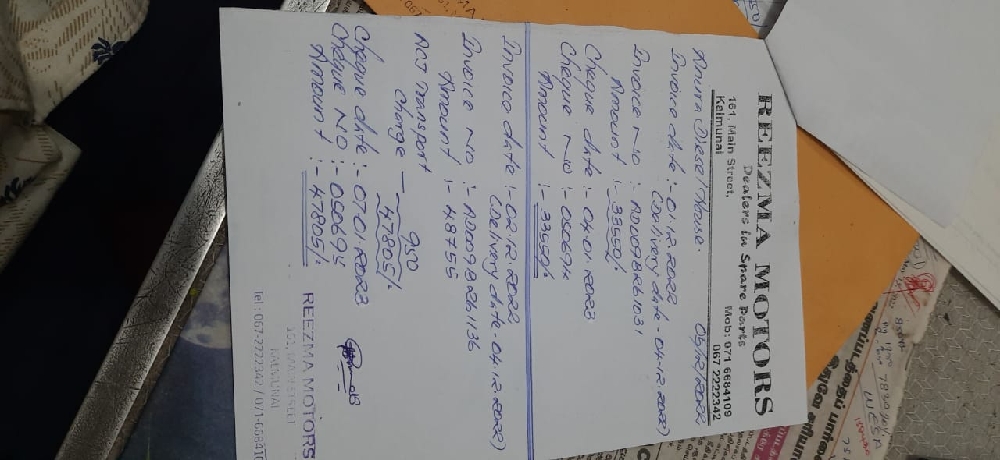 REEZMA MOTORS
Dealers in Spare Parts
161, Main Street,
Kalmunai
Mob: 071 6684109
067 2222342
05/12/2022
Invoice date :- 01.12.2022
(Delivery date - 04-12-2022)
Invoice No :- AD0098261031
Amount :- 33550/-
Cheque date :- 04.01.2023
Cheque No :- 050694
Amount :- 33550/-
Invoice date :- 02.12.2022
(Delivery date. 04.12.2022)
Invoice No :- AD0098261136
Amount :- 48755
ACT Transport
Charge - 950
47805/-
Cheque date :- 07.01.2023
Cheque NO :- 050695
Amount :- 47805/-
REEZMA MOTORS
161, MAIN STREET
KALMUNAI
Tel: 067-2222342 / 071-668410